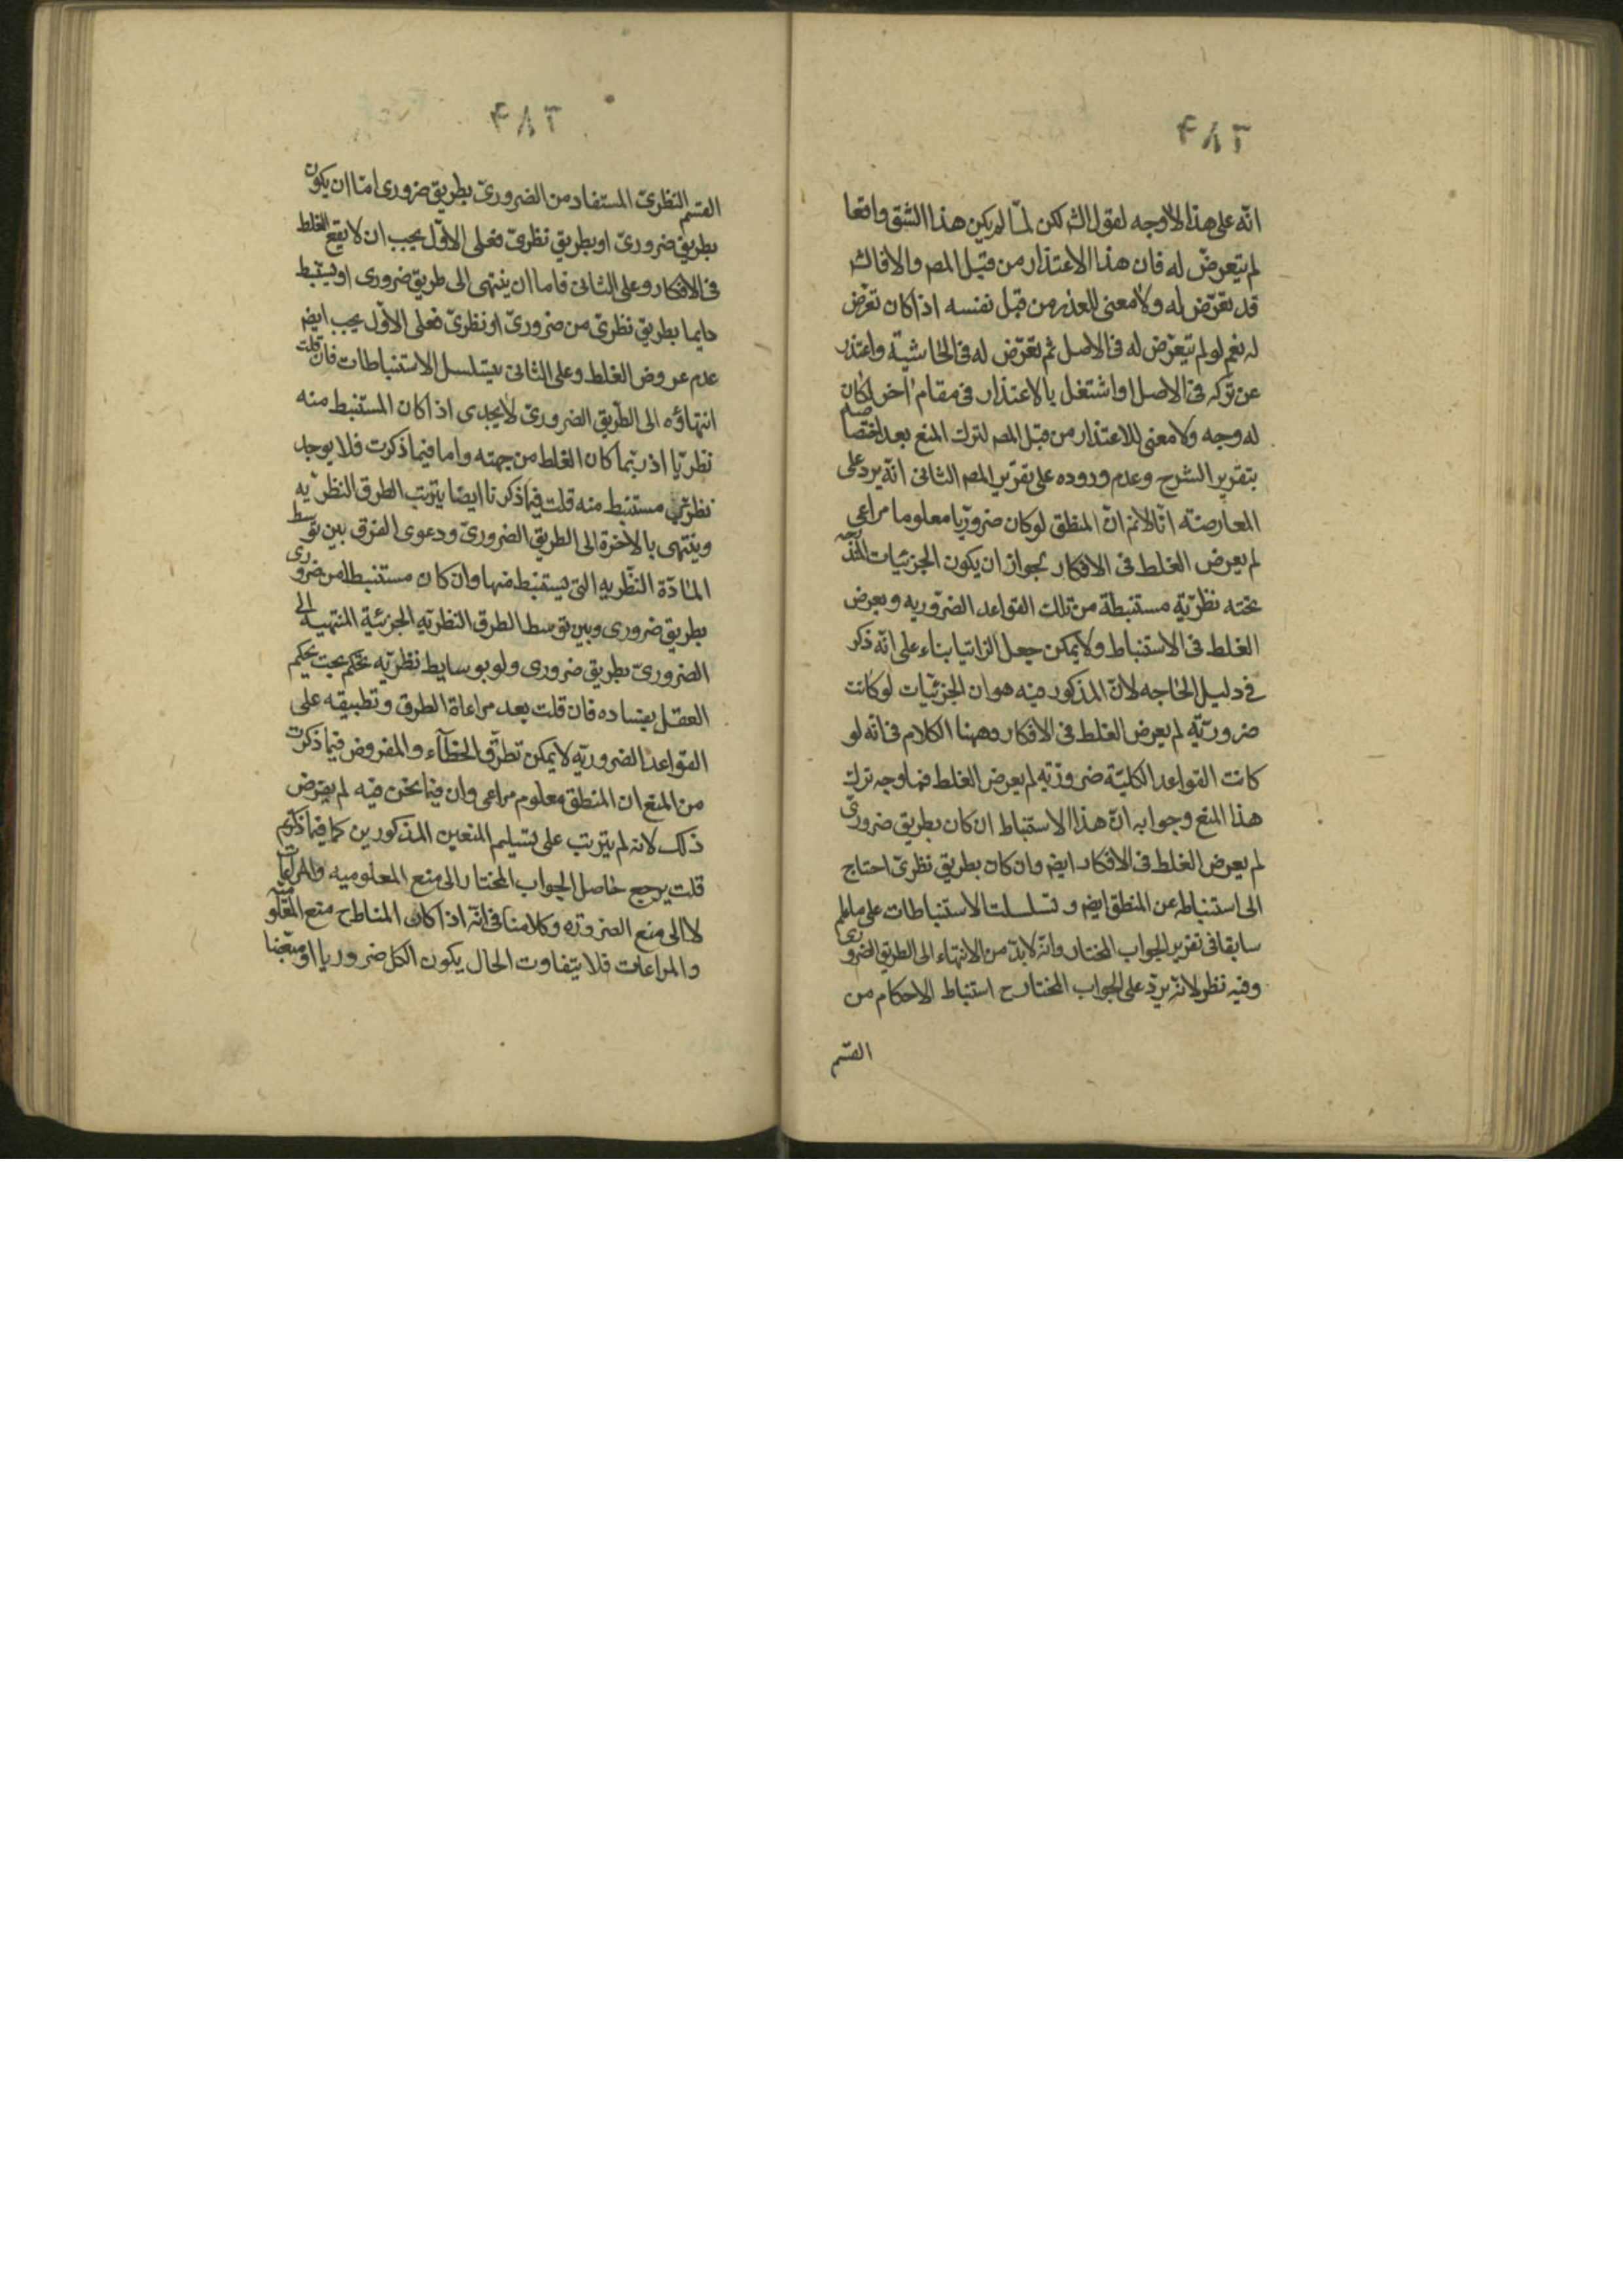 انّه على هذا لا وجه لقول الش لكن لمّا لم يكن هذا الشق واقعا
لم يتعرض له فان هذا الاعتذار من قبل المص والا فالش
قد تعرّض له ولا معنى للعذر من قبل نفسه اذا كان تعرّض
له نعم لو لم يتعرّض له فى الاصل ثم تعرّض له فى الحاشية واعتذر
عن تركه فى الاصل او اشتغل بالاعتذار فى مقام اخر لكان
له وجه ولا معنى للاعتذار من قبل المص لترك المنع بعد اختصاصه
بتقرير الشرح وعدم وروده على تقرير المص الثانى انّه يرد على
المعارضة انّا لانم انّ المنطق لو كان ضروريّا معلوما مراعى
لم يعرض الغلط فى الافكار لجواز ان يكون الجزئيات المندرجه
تحته نظريّة مستنبطة من تلك القواعد الضروريه ويعرض
الغلط فى الاستنباط ولا يمكن جعل الزاتيا بناء على انّه ذكر
فى دليل الحاجه لانّ المذكور فيه هو ان الجزئيّات لو كانت
ضروريّة لم يعرض الغلط فى الافكار وههنا الكلام فى انّه لو
كانت القواعد الكليّة ضروريّه لم يعرض الغلط فما وجه ترك
هذا المنع وجوابه انّ هذا الاستنباط ان كان بطريق ضرورىّ
لم يعرض الغلط فى الافكار ايضم وان كان بطريق نظرىّ احتاج
الى استنباطه عن المنطق ايضم وتسلسلت الاستنباطات على ما علم
سابقا فى تقرير الجواب المختار وانّه لا بدّ من الانتهاء الى الطريق الضرورى
وفيه نظر لانّه يرد على الجواب المختار ح استنباط الاحكام من
القسم
٢٨٣
القسم النظرىّ المستفاد من الضرورىّ بطريق ضرورى امّا ان يكون
بطريق ضرورىّ او بطريق نظرىّ فعلى الاوّل يجب ان لا يقع الغلط
فى الافكار وعلى الثانى فاما ان ينتهى الى طريق ضرورى او يستنبط
دايما بطريق نظرىّ من ضرورىّ او نظرىّ فعلى الاوّل يجب ايضم
عدم عروض الغلط وعلى الثانى يتسلسل الاستنباطات فان قلت
انتهاؤه الى الطّريق الضرورىّ لا يجدى اذا كان المستنبط منه
نظريّا اذ ربّما كان الغلط من جهته واما فيما ذكرت فلا يوجد
نظرىّ مستنبط منه قلت فيما ذكرنا ايضا يترتب الطرق النظريّه
وينتهى بالآخرة الى الطريق الضرورىّ ودعوى الفرق بين توسط
المادّة النظريه التى يستنبط منها وان كان مستنبطا من ضرورى
بطريق ضرورى وبين توسط الطرق النظريّه الجزئية المنتهية الى
الضرورىّ بطريق ضرورى ولو بوسايط نظريّه تحكّم بحت يحكم
العقل بفساده فان قلت بعد مراعاة الطرق وتطبيقه على
القواعد الضروريّه لا يمكن تطرّق الخطاء والمفروض فيما ذكرت
من المنع ان المنطق معلوم مراعى وان فيما نحن فيه لم يفرض
ذلك لانه لم يترتب على تسليم المنعين المذكورين كما فيما ذكرتم
قلت يرجع حاصل الجواب المختار الى منع المعلوميه والمراعات
لا الى منع الضروره وكلامنا فى انّه اذا كان المناط ح منع المعلوميّه
والمراعات فلا يتفاوت الحال بكون الكل ضروريا او مبعّضا